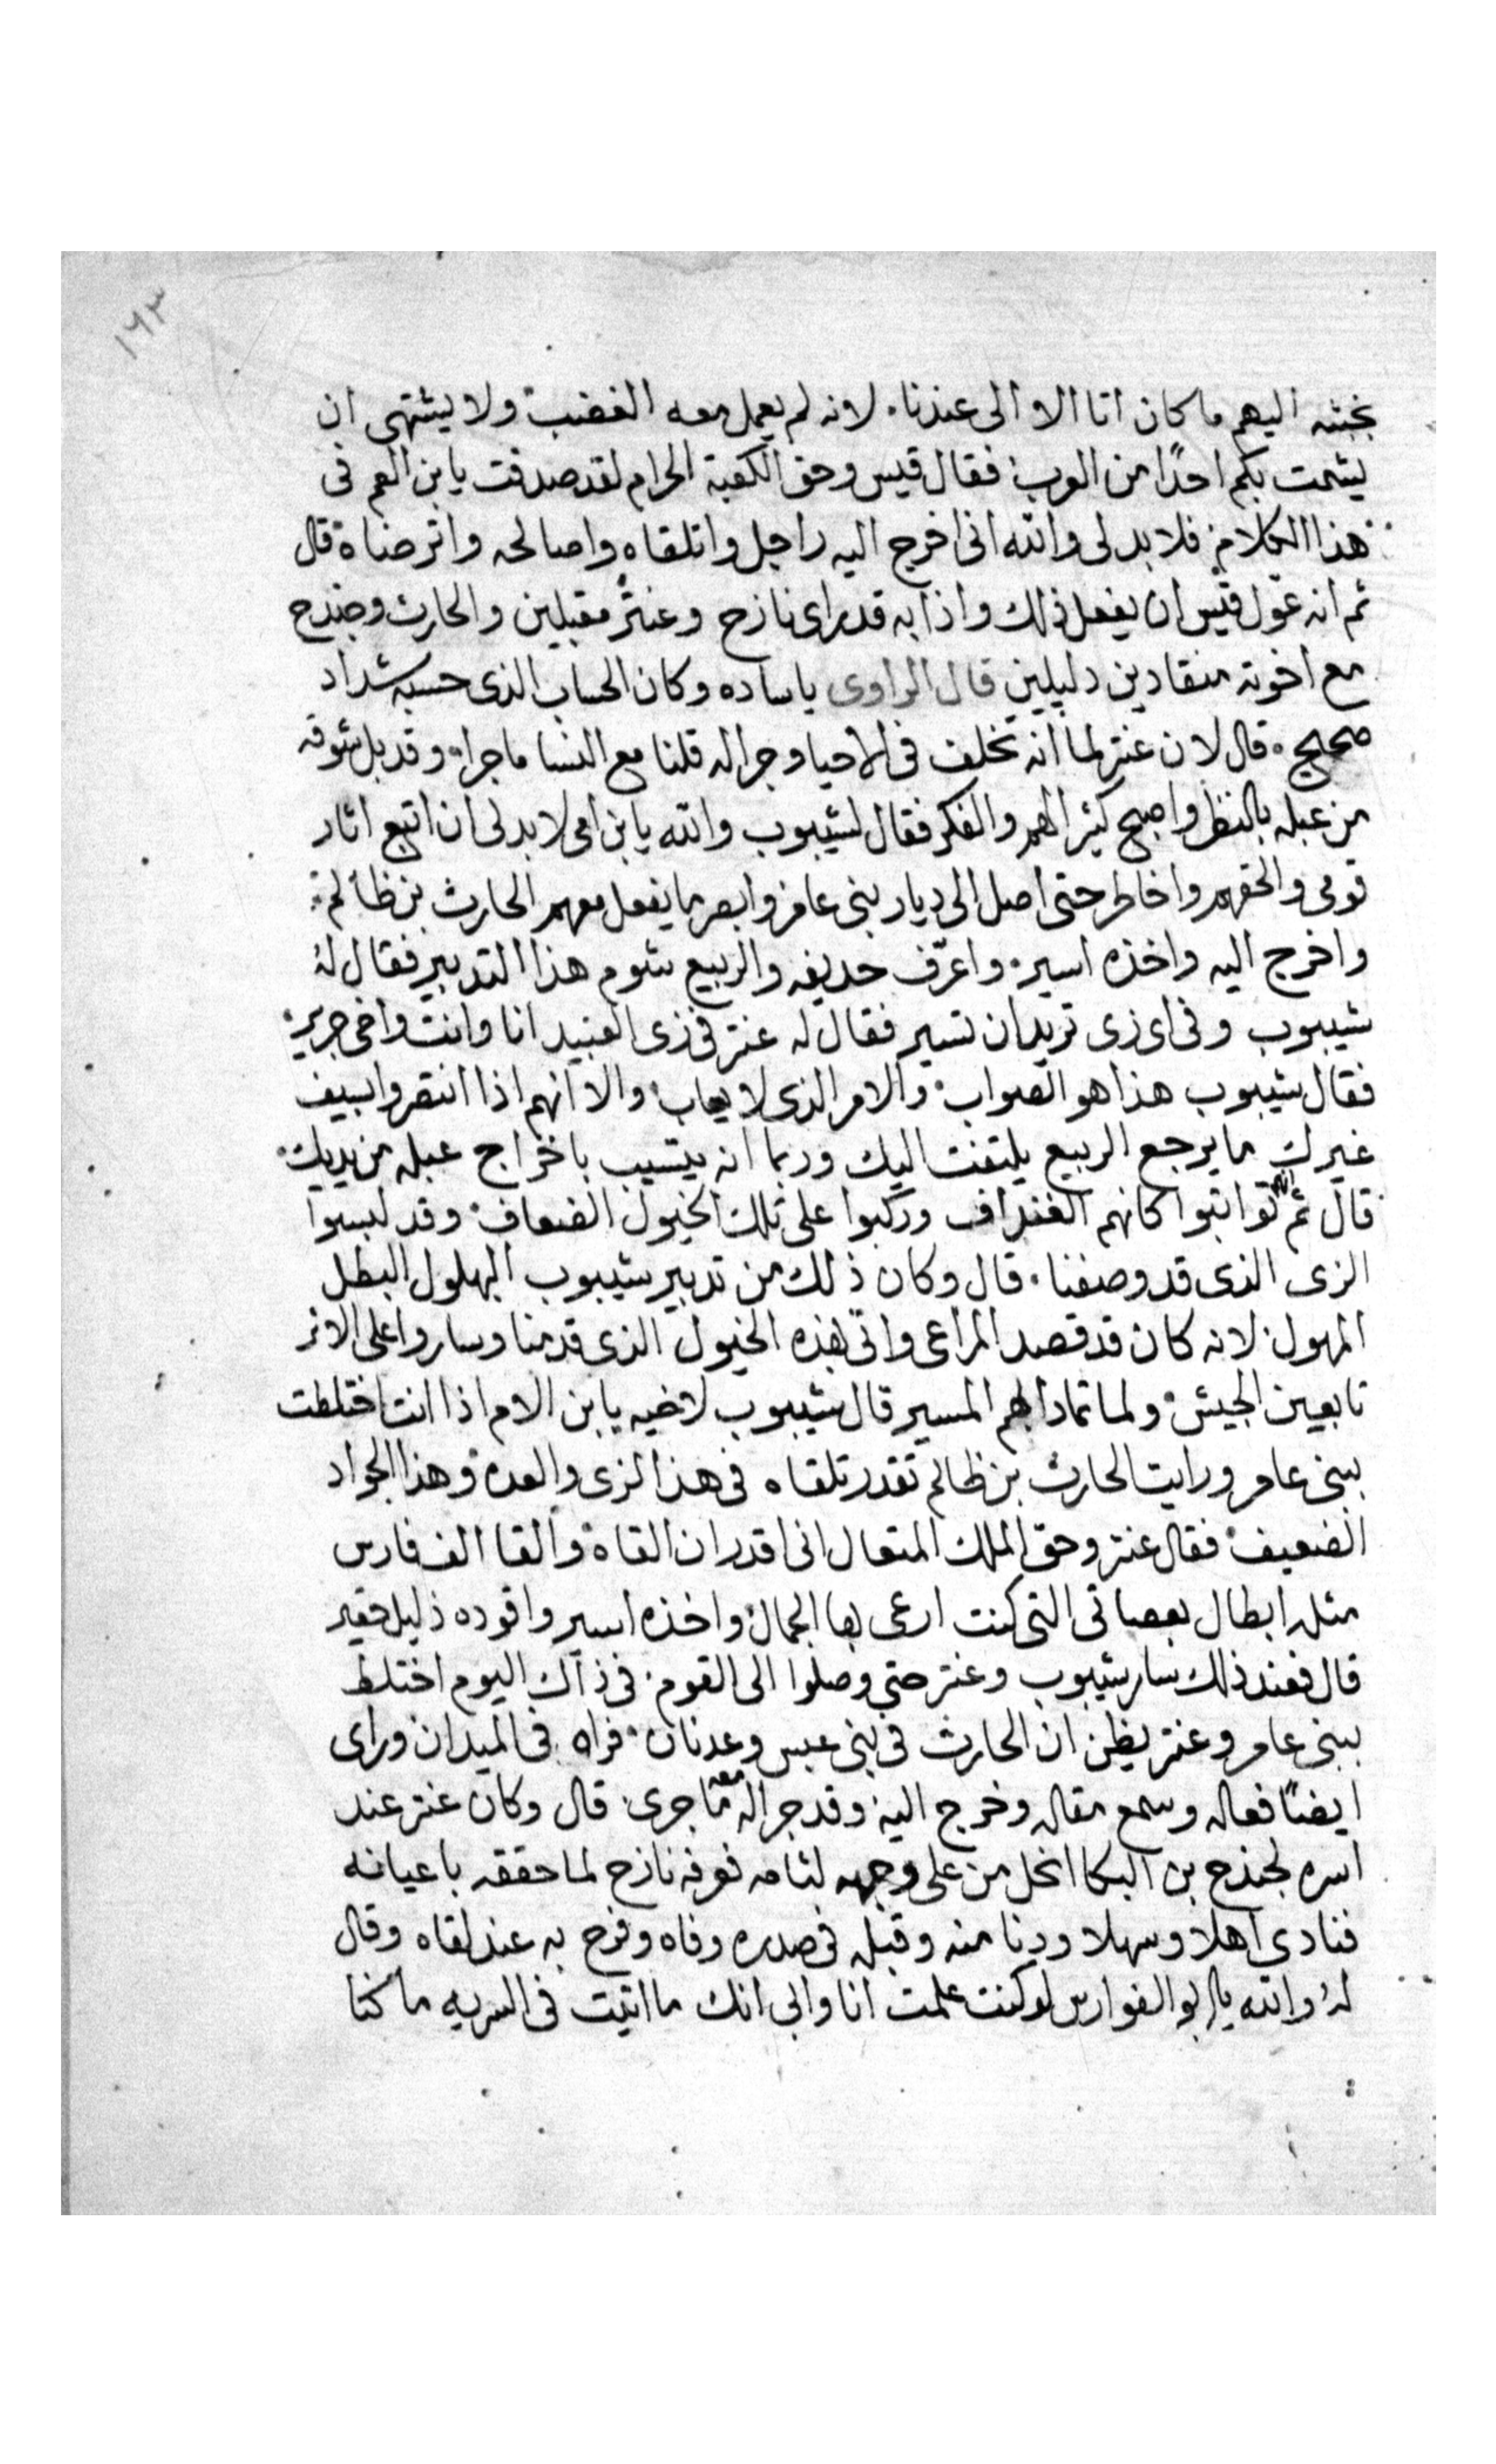 ١٦٣
بجيشه اليهم ما كان اتا الا الى عندنا. لانه لم يعمل معه الغضب ولا يشتهى ان
يشمت بكم احدًا من العرب. فقال قيس وحق الكعبة الحرام لقد صدقت يا بن العم فى
هذا الكلام. فلا بد لى والله انى اخرج اليه راجل واتلقاه واصالحه واترضاه قال
ثم انه عوّل قيس ان يفعل ذلك واذا به قد راى نازح وعنتر مقبلين والحارث وجندح
مع اخوته منقادين دليلين قال الراوى ياساده وكان الحساب الذى حسبه شداد
صحيح. قال لان عنتر لما انه تخلف فى الاحيا وجرا له قلنا مع النسا ما جرا. وقد بل شوقه
من عبله بالنظر واصبح كثير الهم والفكر فقال لشيبوب والله يا بن امى لا بد لى ان اتبع اثار
قومى والحقهم واخاطر حتى اصل الى ديار بنى عامر وابصر ما يفعل معهم الحارث بن ظالم.
واخرج اليه واخذه اسير. واعرّف حديفه والربيع شوم هذا التدبير فقال له
شيبوب وفى اى زى تريد ان تسير فقال له عنتر فى زى العبيد انا وانت واخى جرير.
فقال شيبوب هذا هو الصواب. والامر الذى لا يعاب. والا انهم اذا انتصروا بسيف
غيرك ما يرجع الربيع يلتفت اليك وربما انه يتسبب باخراج عبله من يديك.
قال ثم انهم تواثبوا كانهم الغنداف وركبوا على تلك الخيول الضعاف. وقد لبسوا
الزى الذى قد وصفنا. قال وكان ذلك من تدبير شيبوب البهلول البطل
المهول. لانه كان قد قصد المراعى واتى بهذه الخيول الذى قدمنا وساروا على الاثر
تابعين الجيش. ولما تمادا بهم المسير قال شيبوب لاخيه يا بن الام اذا انت اختلطت
ببنى عامر ورايت الحارث بن ظالم تقدر تلقاه فى هذا الزى والعده وهذا الجواد
الضعيف. فقال عنتر وحق الملك المتعال انى اقدر ان القاه والقا الف فارس
مثله ابطال بعصاتى التى كنت ارعى بها الجمال. واخذه اسير واقوده ذليل حقير
قال فعند ذلك سار شيبوب وعنتر حتى وصلوا الى القوم. فى ذاك اليوم اختلط
ببنى عامر وعنتر يظن ان الحارث فى بنى عبس وعدنان. فراه فى الميدان وراى
ايضًا فعاله وسمع مقاله وخرج اليه. وقد جرا له معه ما جرى. قال وكان عنتر عند
اسره لجندح بن البكا انحل من على وجهه لثامه فعرفه نازح لما حققه باعيانه
فنادى اهلا وسهلا ودنا منه وقبله فى صدره وفاه وفرح به عند لقاه وقال
له والله يا ابو الفوارس لو كنت علمت انا وابى انك ما اتيت فى السريه ما كنا